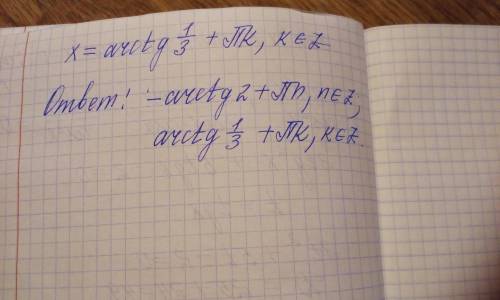 x = arctg 1/3 + Пк, к ∈ Z
Ответ: -arctg 2 + Пn, n ∈ Z,
arctg 1/3 + Пк, к ∈ Z.